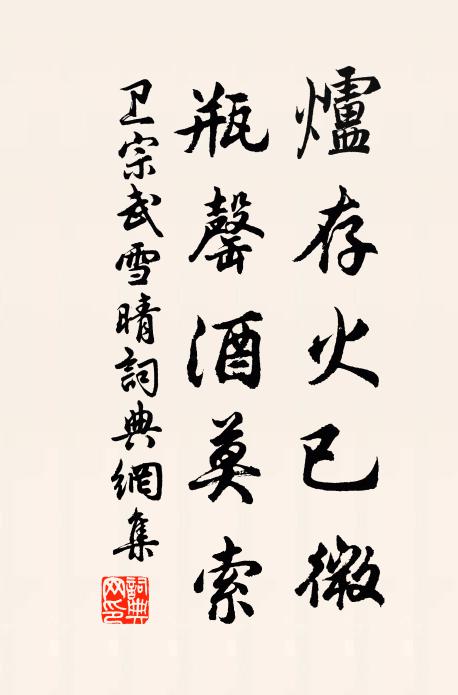 爐存火已微
瓶罄酒莫索
卫宗武雪晴詞典網集
詞典